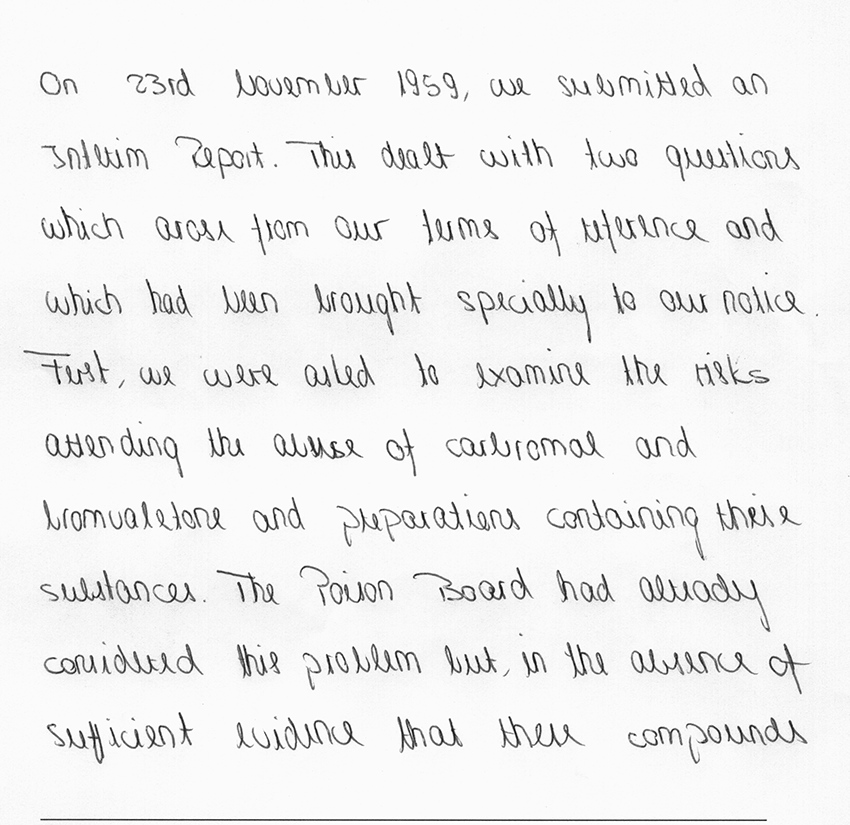 On 23rd November 1959, we submitted an
Interim Report. This dealt with two questions
which arose from our terms of reference and
which had been brought specially to our notice.
First, we were asked to examine the risks
attending the abuse of carbromal and
bromvaletone and preparations containing these
substances. The Poison Board had already
considered this problem but, in the absence of
sufficient evidence that these compounds